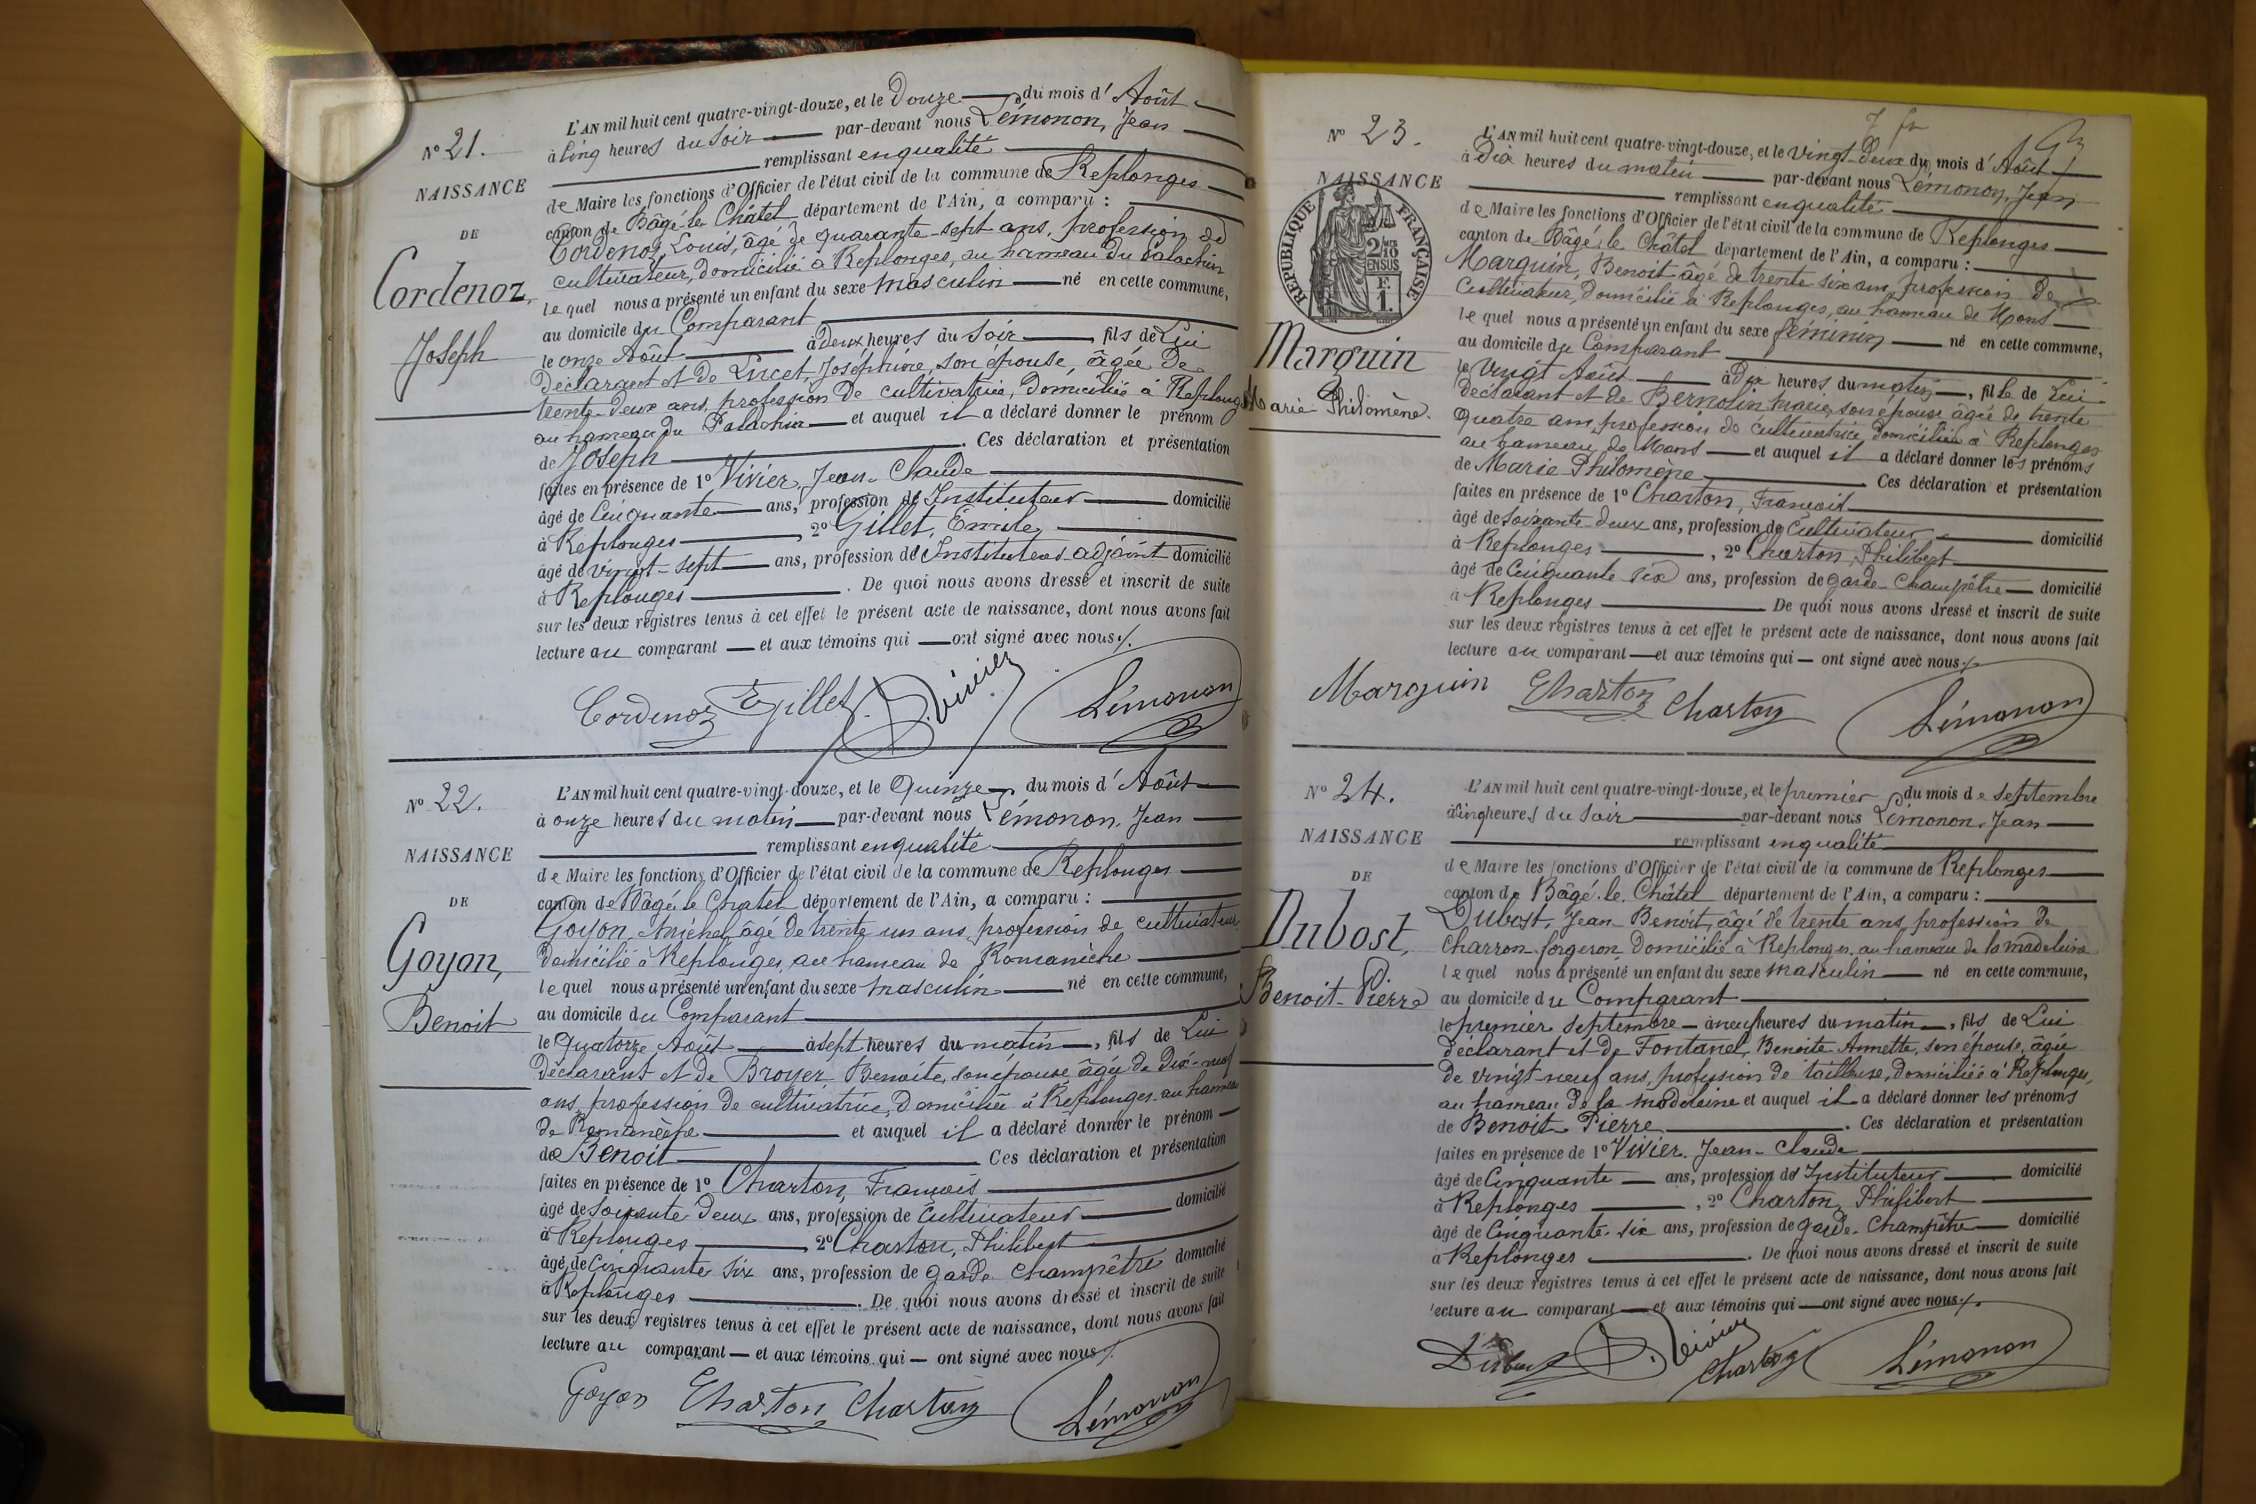 N° 21.
NAISSANCE
DE
Cordenoz,
Joseph
L'AN mil huit cent quatre-vingt-douze, et le Douze du mois d'Août
à Cinq heures du Soir par-devant nous Lémonon, Jean
remplissant en qualité
de Maire les fonctions d'Officier de l'état civil de la commune de Replonges
canton de Bâgé-le-Châtel département de l'Ain, a comparu :
Cordenoz, Louis, âgé de quarante-sept ans, profession de
cultivateur, domicilié à Replonges, au hameau du Palachin
lequel nous a présenté un enfant du sexe masculin né en cette commune,
au domicile du Comparant
le onze Août à deux heures du Soir, fils de Lui
déclarant et de Lucet, Joséphine, son épouse, âgée de
trente-deux ans, profession de cultivatrice, domiciliée à Replonges
au hameau du Palachin et auquel il a déclaré donner le prénom
de Joseph. Ces déclaration et présentation
faites en présence de 1° Vivier, Jean-Claude
âgé de Cinquante ans, profession d'Instituteur domicilié
à Replonges, 2° Gillet, Émile,
âgé de vingt-sept ans, profession d'Instituteur-adjoint domicilié
à Replonges. De quoi nous avons dressé et inscrit de suite
sur les deux registres tenus à cet effet le présent acte de naissance, dont nous avons fait
lecture au comparant et aux témoins qui ont signé avec nous.
Cordenoz E Gillet Vivier Lémonon
N° 22.
NAISSANCE
DE
Goyon,
Benoit
L'AN mil huit cent quatre-vingt-douze, et le Quinze du mois d'Août
à onze heures du matin par-devant nous Lémonon, Jean
remplissant en qualité
de Maire les fonctions d'Officier de l'état civil de la commune de Replonges
canton de Bâgé-le-Châtel département de l'Ain, a comparu :
Goyon, Michel, âgé de trente un ans, profession de cultivateur
domicilié à Replonges, au hameau de Romanèche
lequel nous a présenté un enfant du sexe masculin né en cette commune,
au domicile du Comparant
le Quatorze Août à sept heures du matin, fils de Lui
déclarant et de Broyer Benoite, son épouse, âgée de Dix-neuf
ans, profession de cultivatrice, domiciliée à Replonges au hameau
de Romanèche et auquel il a déclaré donner le prénom
de Benoit Ces déclaration et présentation
faites en présence de 1° Charton, François
âgé de soixante deux ans, profession de Cultivateur domicilié
à Replonges, 2° Charton, Philibert
âgé de Cinquante six ans, profession de garde champêtre domicilié
à Replonges. De quoi nous avons dressé et inscrit de suite
sur les deux registres tenus à cet effet le présent acte de naissance, dont nous avons fait
lecture au comparant et aux témoins qui ont signé avec nous.
Goyon Charton Charton Lémonon
N° 23.
NAISSANCE
RÉPUBLIQUE FRANÇAISE
2/10
EN SUS
F.
1.
Marguin
Marie Philomène.
L'AN mil huit cent quatre-vingt-douze, et le Vingt-deux du mois d'Août
à Dix heures du matin par-devant nous Lémonon, Jean
remplissant en qualité
de Maire les fonctions d'Officier de l'état civil de la commune de Replonges
canton de Bâgé-le-Châtel département de l'Ain, a comparu :
Marguin, Benoit âgé de trente six ans, profession de
Cultivateur, domicilié à Replonges, au hameau de Mons
lequel nous a présenté un enfant du sexe féminin né en cette commune,
au domicile du Comparant
le Vingt Août à Dix heures du matin, fille de Lui
déclarant et de Bernolin Marie, son épouse âgée de trente
Quatre ans, profession de cultivatrice domiciliée à Replonges
au hameau de Mons et auquel il a déclaré donner les prénoms
de Marie Philomène Ces déclaration et présentation
faites en présence de 1° Charton, François
âgé de soixante deux ans, profession de Cultivateur domicilié
à Replonges, 2° Charton, Philibert
âgé de Cinquante six ans, profession de garde-champêtre domicilié
à Replonges De quoi nous avons dressé et inscrit de suite
sur les deux registres tenus à cet effet le présent acte de naissance, dont nous avons fait
lecture au comparant et aux témoins qui ont signé avec nous.
Marguin Charton Charton Lémonon
N° 24.
NAISSANCE
DE
Dubost,
Benoit-Pierre
L'AN mil huit cent quatre-vingt-douze, et le premier du mois de septembre
à Cinq heures du soir par-devant nous Lémonon, Jean
remplissant en qualité
de Maire les fonctions d'Officier de l'état civil de la commune de Replonges
canton de Bâgé-le-Châtel département de l'Ain, a comparu :
Dubost, Jean Benoit, âgé de trente ans, profession de
Charron forgeron, domicilié à Replonges, au hameau de la madeleine
lequel nous a présenté un enfant du sexe masculin né en cette commune,
au domicile du Comparant
le premier septembre à neuf heures du matin, fils de Lui
déclarant et de Fontanel, Benoite Annette, son épouse, âgée
de vingt-neuf ans, profession de tailleuse, domiciliée à Replonges,
au hameau de la madeleine et auquel il a déclaré donner les prénoms
de Benoit Pierre. Ces déclaration et présentation
faites en présence de 1° Vivier, Jean-Claude
âgé de Cinquante ans, profession d'Instituteur domicilié
à Replonges, 2° Charton, Philibert
âgé de Cinquante-six ans, profession de garde-champêtre domicilié
à Replonges. De quoi nous avons dressé et inscrit de suite
sur les deux registres tenus à cet effet le présent acte de naissance, dont nous avons fait
lecture au comparant et aux témoins qui ont signé avec nous.
Dubost Vivier Charton Lémonon